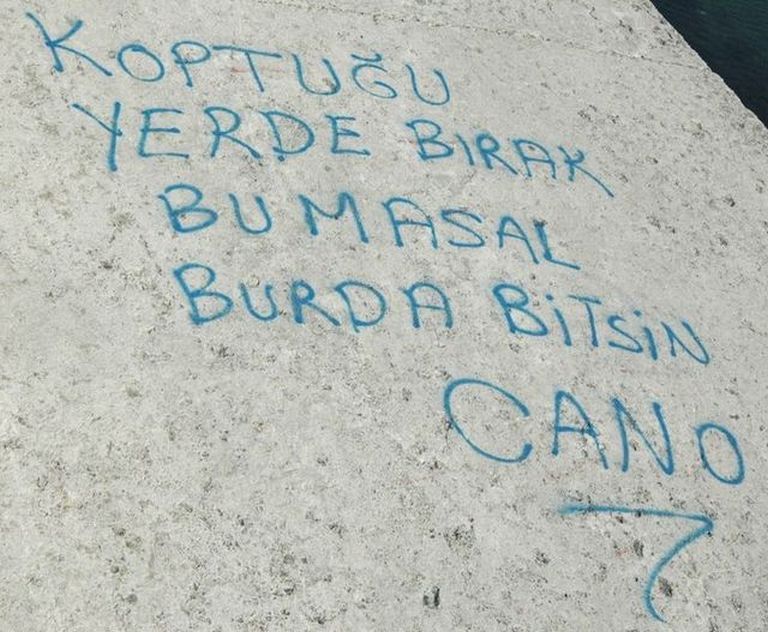 KOPTUĞU
YERDE BIRAK
BU MASAL
BURDA BiTSiN
CANO
7